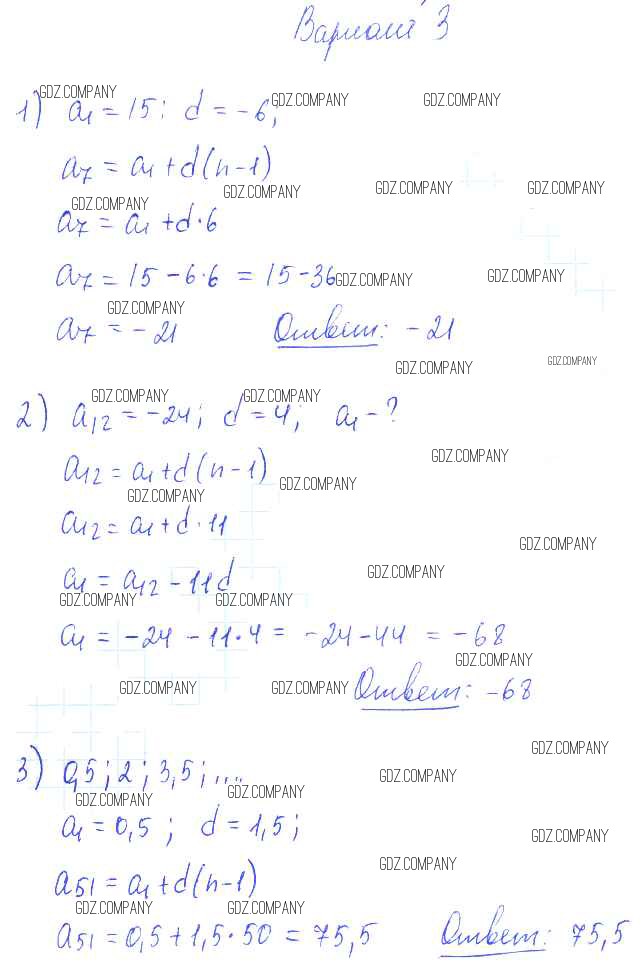 Вариант 3
GDZ.COMPANY
1) a₁ = 15; d = -6,
GDZ.COMPANY GDZ.COMPANY
a₇ = a₁ + d(n-1)
GDZ.COMPANY GDZ.COMPANY GDZ.COMPANY
GDZ.COMPANY
a₇ = a₁ + d·6
a₇ = 15 - 6·6 = 15 - 36
GDZ.COMPANY GDZ.COMPANY
GDZ.COMPANY
a₇ = -21 Ответ: -21
GDZ.COMPANY GDZ.COMPANY
GDZ.COMPANY GDZ.COMPANY
2) a₁₂ = -24; d = 4; a₁ - ?
GDZ.COMPANY
a₁₂ = a₁ + d(n-1)
GDZ.COMPANY
GDZ.COMPANY
a₁₂ = a₁ + d·11
GDZ.COMPANY
GDZ.COMPANY
a₁ = a₁₂ - 11d
GDZ.COMPANY GDZ.COMPANY
a₁ = -24 - 11·4 = -24 - 44 = -68
GDZ.COMPANY
GDZ.COMPANY GDZ.COMPANY
Ответ: -68
GDZ.COMPANY
3) 0,5; 2; 3,5; ....
GDZ.COMPANY
GDZ.COMPANY GDZ.COMPANY
a₁ = 0,5; d = 1,5;
GDZ.COMPANY
GDZ.COMPANY
a₅₁ = a₁ + d(n-1)
GDZ.COMPANY GDZ.COMPANY
a₅₁ = 0,5 + 1,5·50 = 75,5 Ответ: 75,5